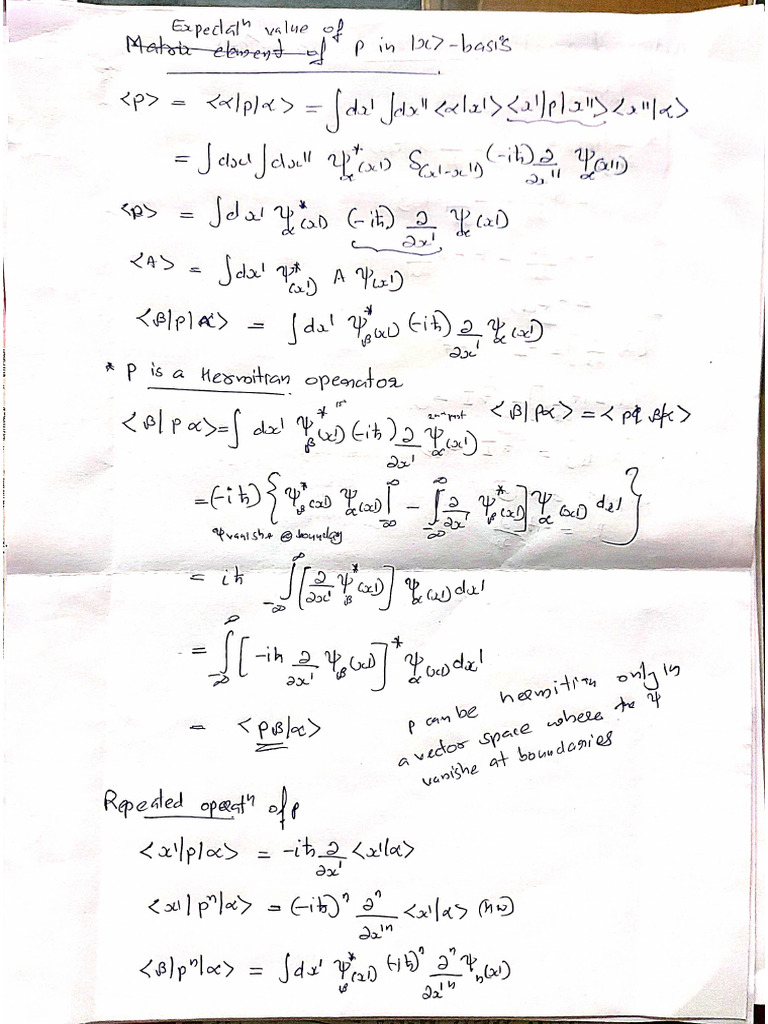 Expectatⁿ value of
~~Matrix element of~~ p in |x> -basis
<p> = <α|p|α> = ∫dx' ∫dx'' <α|x'> <x'|p|x''> <x''|α>
= ∫dx' ∫dx'' ψ*_α(x') δ(x'-x'') (-iħ) ∂/∂x'' ψ_α(x'')
<p> = ∫dx' ψ*_α(x') (-iħ) ∂/∂x' ψ_α(x')
<A> = ∫dx' ψ*(x') A ψ(x')
<β|p|α> = ∫dx' ψ*_β(x') (-iħ) ∂/∂x' ψ_α(x')
* P is a Hermitian operator
<β|pα> = ∫ dx' ψ*_β(x') (-iħ) ∂/∂x' ψ_α(x') <β|pα> = <pβ|α>
= (-iħ) { ψ*_β(x') ψ_α(x') |_{-∞}^{∞} - ∫_{-∞}^{∞} [∂/∂x' ψ*_β(x')] ψ_α(x') dx' }
ψ vanishes @ boundary
= iħ ∫_{-∞}^{∞} [∂/∂x' ψ*_β(x')] ψ_α(x') dx'
= ∫_{-∞}^{∞} [-iħ ∂/∂x' ψ_β(x')]* ψ_α(x') dx'
= <pβ|α>
p can be hermitian only in
a vector space where the ψ
vanishe at boundaries
Repeated operatⁿ of p
<x'|p|α> = -iħ ∂/∂x' <x'|α>
<x'|pⁿ|α> = (-iħ)ⁿ ∂ⁿ/∂x'ⁿ <x'|α> (hw)
<β|pⁿ|α> = ∫dx' ψ*_β(x') (-iħ)ⁿ ∂ⁿ/∂x'ⁿ ψ_n(x')